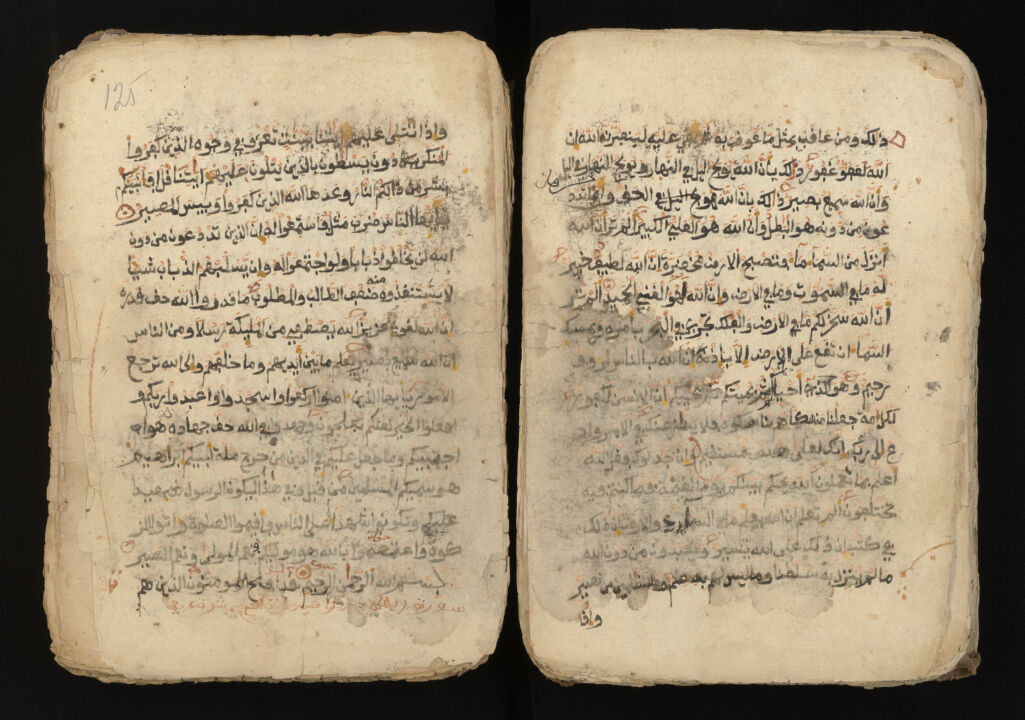 ذلك ومن عاقب بمثل ما عوقب به ثم بغي عليه لينصرنه الله ان
الله لعفو غفور ذلك بأن الله يولج اليل في النهار ويولج النهار في اليل
وأن الله سميع بصير ذلك بان الله هو الحق وان ما يد
عون من دونه هو البطل وأن الله هو العلي الكبير الم تر ان الله
انزل من السما ما فتصبح الارض مخضرة ان الله لطيف خبير
له ما في السموت وما في الارض وان الله لهو الغني الحميد الم تر
أن الله سخر لكم ما في الارض والفلك تجري في البحر بامره ويمسك
السما ان تقع على الارض الا باذنه ان الله بالناس لروف
رحيم وهو الذي احياكم ثم يميتكم ثم يحييكم ان الانسن لكفور
لكل امة جعلنا منسكا هم ناسكوه فلا ينزعنك في الامر واد
ع الى ربك انك لعلى هدى مستقيم وان جدلوك فقل الله
اعلم بما تعملون الله يحكم بينكم يوم القيمة فيما كنتم فيه
تختلفون الم تعلم ان الله يعلم ما في السما والارض ان ذلك
في كتب ان ذلك على الله يسير ويعبدون من دون الله
ما لم ينزل به سلطنا وما ليس لهم به علم وما للظلمين من نصير
واذا
125
واذا تتلى عليهم ايتنا بينت تعرف في وجوه الذين كفروا
المنكر يكادون يسطون بالذين يتلون عليهم ايتنا قل افانبيكم
بشر من ذلكم النار وعدها الله الذين كفروا وبيس المصير
يايها الناس ضرب مثل فاستمعوا له ان الذين تدعون من دون
الله لن يخلقوا ذبابا ولو اجتمعوا له وان يسلبهم الذباب شيا
لا يستنقذوه منه ضعف الطالب والمطلوب ما قدروا الله حق قدره
ان الله لقوي عزيز الله يصطفي من المليكة رسلا ومن الناس
ان الله سميع بصير يعلم ما بين ايديهم وما خلفهم والى الله ترجع
الامور يايها الذين امنوا اركعوا واسجدوا واعبدوا ربكم و
افعلوا الخير لعلكم تفلحون وجهدوا في الله حق جهاده هو ا
جتبيكم وما جعل عليكم في الدين من حرج ملة ابيكم ابراهيم
هو سميكم المسلمين من قبل وفي هذا ليكون الرسول شهيدا
عليكم وتكونوا شهدا على الناس فاقيموا الصلوة واتوا الز
كوة واعتصموا بالله هو موليكم فنعم المولى ونعم النصير
بسم الله الرحمن الرحيم قد افلح المومنون الذين هم